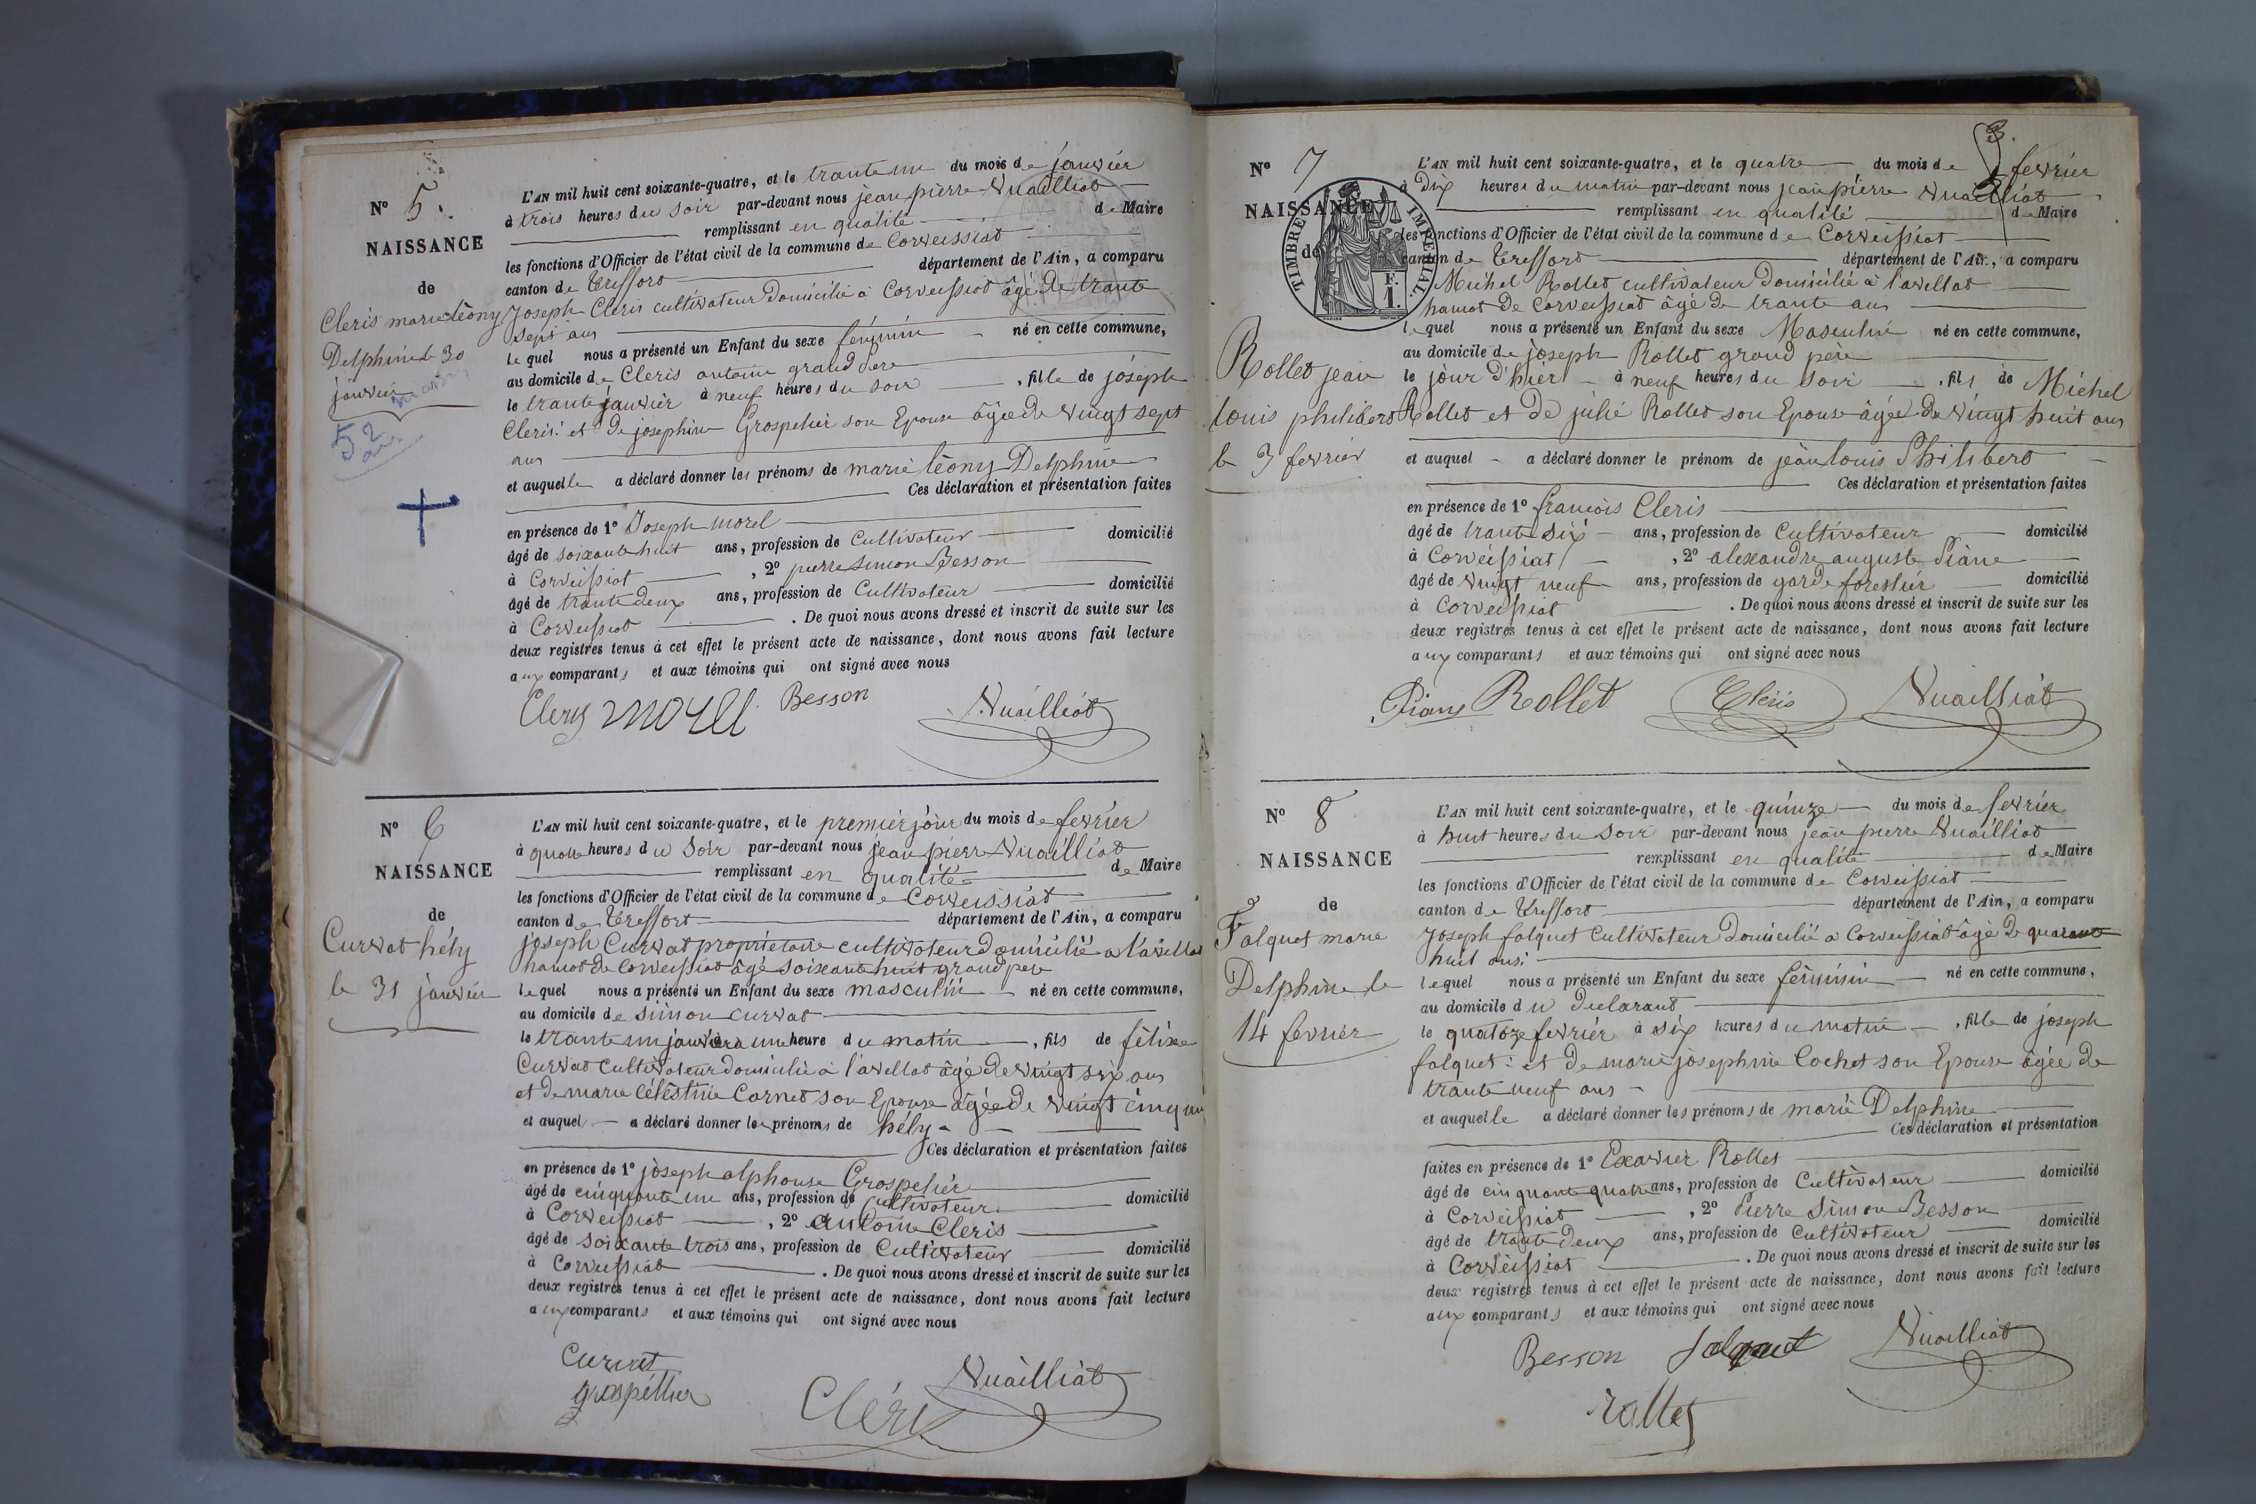 Nº 5.
NAISSANCE
de
Cleris marie lèony
Delphine le 30
janvier
52
L'AN mil huit cent soixante-quatre, et le trante un du mois de janvier
à trois heures du soir par-devant nous jean pierre Nuailliat
remplissant en qualité de Maire
les fonctions d'Officier de l'état civil de la commune de Corveissiat
canton de Treffort département de l'Ain, a comparu
Joseph Cleris cultivateur Domicilié à Corveissiat âgé de trante
sept ans
le quel nous a présenté un Enfant du sexe féminin né en cette commune,
au domicile de Cleris antoine grand père
le trante janvier à neuf heures du soir, fille de joseph
Cleris: et de josephine Grospelier son Epouse âgée de vingt sept
ans
et auquelle a déclaré donner les prénoms de marie lèony Delphine
Ces déclaration et présentation faites
en présence de 1º Joseph morel
âgé de soixante huit ans, profession de Cultivateur domicilié
à Corveissiat, 2º pierre simon Besson
âgé de trante deux ans, profession de Cultivateur domicilié
à Corveissiat. De quoi nous avons dressé et inscrit de suite sur les
deux registres tenus à cet effet le présent acte de naissance, dont nous avons fait lecture
aux comparants et aux témoins qui ont signé avec nous
Cleris morel Besson Nuailliat
Nº 6
NAISSANCE
de
Curvat hély
le 31 janvier
L'AN mil huit cent soixante-quatre, et le premier jour du mois de fevrier
à quatre heures du Soir par-devant nous jean pierre Nuailliat
remplissant en qualité de Maire
les fonctions d'Officier de l'état civil de la commune de Corveissiat
canton de Treffort département de l'Ain, a comparu
joseph Curvat propriétaire cultivateur domicilié a l'avellat
hamot de Corveissiat âgé soixante huit grand pere
lequel nous a présenté un Enfant du sexe masculin né en cette commune,
au domicile de simon curvat
le trante un janvier a une heure du matin, fils de félixe
Curvat Cultivateur domicilié à l'avellat âgé de vingt six ans
et de marie célèstine Cornet son Epouse âgée de vingt cinq ans
et auquel a déclaré donner les prénoms de hély
Ces déclaration et présentation faites
en présence de 1º joseph alphonse Grospelier
âgé de cinquante un ans, profession de Cultivateur domicilié
à Corveissiat, 2º antoine Cleris
âgé de soixante trois ans, profession de Cultivateur domicilié
à Corveissiat. De quoi nous avons dressé et inscrit de suite sur les
deux registres tenus à cet effet le présent acte de naissance, dont nous avons fait lecture
aux comparants et aux témoins qui ont signé avec nous
Curvat
grospéllier Cléris Nuailliat
3.
Nº 7
NAISSANCE
de
TIMBRE IMPÉRIAL
F.
1.
Rollet jean
louis philibert
le 3 fevrier
L'AN mil huit cent soixante-quatre, et le quatre du mois de fevrier
à dix heures du matin par-devant nous jean pierre Nuailliat
remplissant en qualité de Maire
les fonctions d'Officier de l'état civil de la commune de Corveissiat
canton de Treffort département de l'Ain, a comparu
Michel Rollet cultivateur Domicilié à l'avellat
hamot de Corveissiat âgé de trante ans
lequel nous a présenté un Enfant du sexe Masculin né en cette commune,
au domicile de joseph Rollet grand père
le jour d'hier à neuf heures du soir, fils de Michel
Rollet et de julie Rollet son Epouse âgée de vingt huit ans
et auquel a déclaré donner le prénom de jean louis Philibert
Ces déclaration et présentation faites
en présence de 1º francois Cleris
âgé de trante six ans, profession de Cultivateur domicilié
à Corveissiat, 2º alexandre auguste Piane
âgé de vingt neuf ans, profession de garde forestier domicilié
à Corveissiat. De quoi nous avons dressé et inscrit de suite sur les
deux registres tenus à cet effet le présent acte de naissance, dont nous avons fait lecture
aux comparants et aux témoins qui ont signé avec nous
Piane Rollet Cléris Nuailliat
Nº 8
NAISSANCE
de
Falquet marie
Delphine le
14 fevrier
L'AN mil huit cent soixante-quatre, et le quinze du mois de fevrier
à huit heures du soir par-devant nous jean pierre Nuailliat
remplissant en qualité de Maire
les fonctions d'Officier de l'état civil de la commune de Corveissiat
canton de Treffort département de l'Ain, a comparu
Joseph falquet Cultivateur Domicilié a Corveissiat âgé de quarante
huit ans:
lequel nous a présenté un Enfant du sexe féminin né en cette commune,
au domicile du Declarant
le quatoze fevrier à six heures du matin, fille de joseph
falquet: et de marie josephine Cochet son Epouse âgée de
trante neuf ans
et auquelle a déclaré donner les prénoms de marie Delphine
Ces déclaration et présentation
faites en présence de 1º Exavier Rollet
âgé de cinquante quatre ans, profession de Cultivateur domicilié
à Corveissiat, 2º Pierre Simon Besson
âgé de trante deux ans, profession de Cultivateur domicilié
à Corveissiat. De quoi nous avons dressé et inscrit de suite sur les
deux registres tenus à cet effet le présent acte de naissance, dont nous avons fait lecture
aux comparants et aux témoins qui ont signé avec nous
Besson falquet Nuailliat
rollet